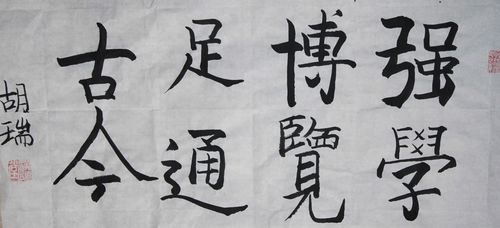 强學
博覽
足通
古今
胡瑞